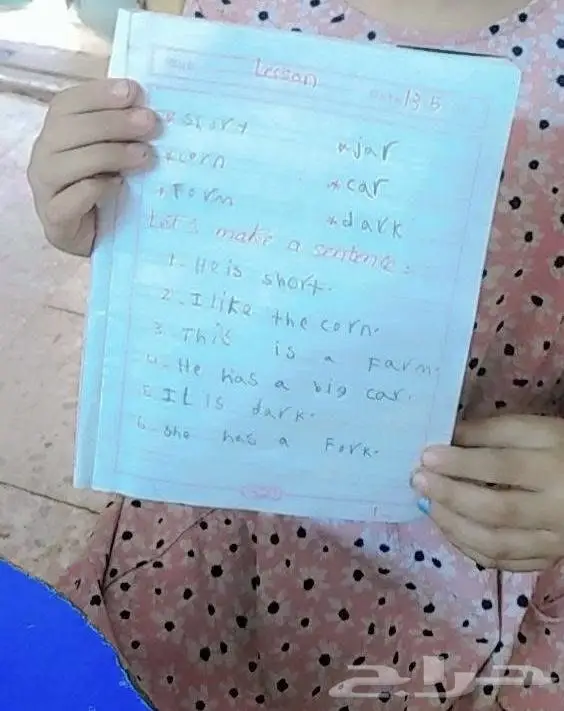 Lesson
13.5
* short
* jar
* corn
* car
* Form
* dark
Let's make a sentence:
1- He is short.
2. I like the corn.
3. This is a Farm.
4- He has a big car.
5. It is dark.
6. She has a Fork.
حراج